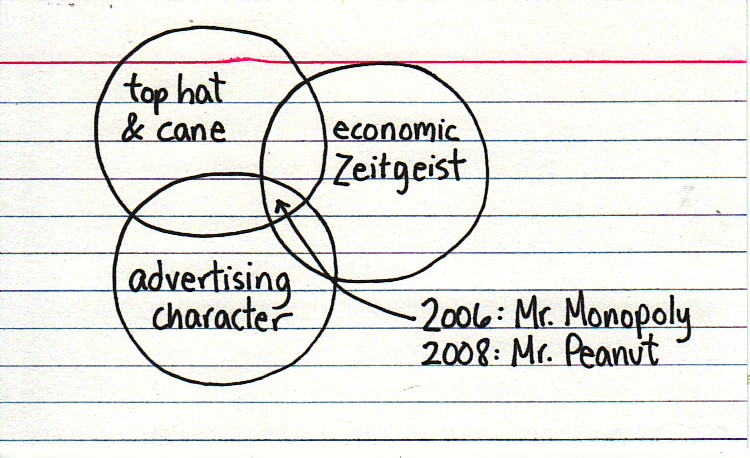 top hat
& cane
economic
Zeitgeist
advertising
character
2006: Mr. Monopoly
2008: Mr. Peanut